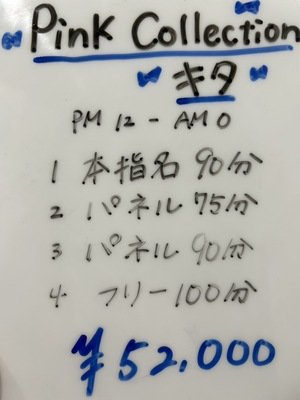 Pink Collection
キタ
PM 12 - AM 0
1 本指名 90分
2 パネル 75分
3 パネル 90分
4 フリー 100分
¥52,000